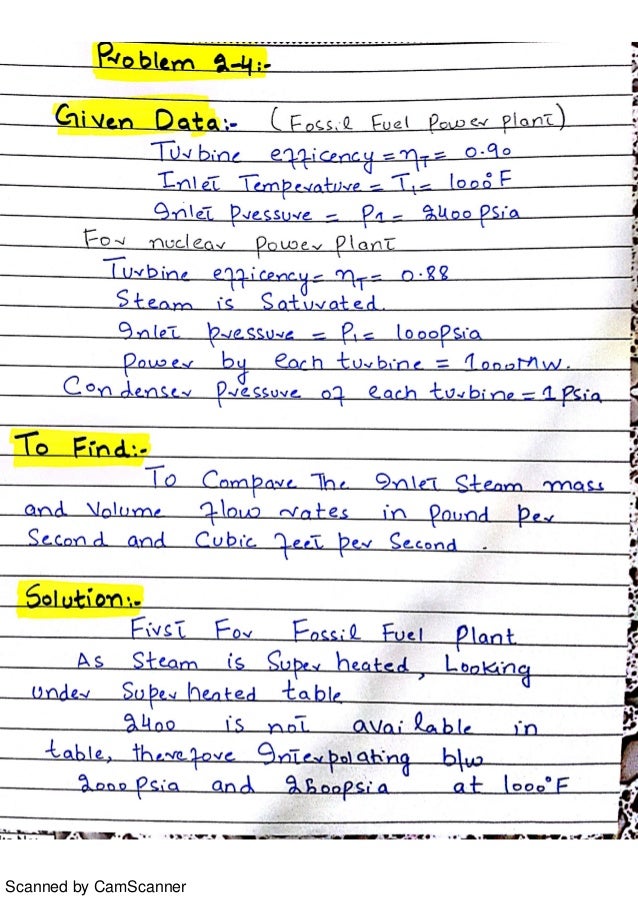 Problem 2-4:-
Given Data:- (Fossil Fuel Power plant)
Turbine efficency = ηT = 0.90
Inlet Temperature = T1 = 1000°F
Inlet Pressure = P1 = 2400 psia
For nuclear Power Plant
Turbine efficency = ηT = 0.88
Steam is Saturated.
Inlet pressure = P1 = 1000psia
Power by each turbine = 1000MW.
Condenser Pressure of each turbine = 1 Psia
To Find:-
To Compare The Inlet Steam mass
and Volume flow rates in Pound Per
Second and Cubic feet per Second .
Solution:-
First For Fossil Fuel Plant
As Steam is Super heated, Looking
under Super heated table
2400 is not available in
table, therefore Interpolating b/w
2000 psia and 2500psia at 1000°F
Scanned by CamScanner